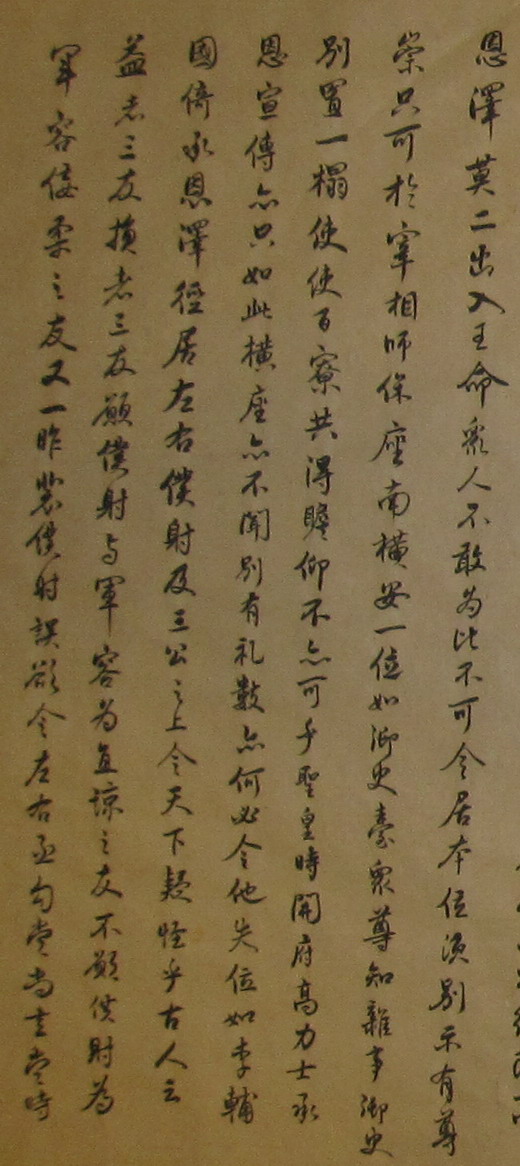 恩澤莫二出入王命衆人不敢為比不可令居本位須別示有尊
崇只可於宰相師保座南橫安一位如御史臺衆尊知雜事御史
別置一榻使使百寮共得瞻仰不亦可乎聖皇時開府高力士承
恩宣傳亦只如此橫座亦不聞別有礼數亦何必令他失位如李輔
國倚承恩澤徑居左右僕射及三公之上令天下疑怪乎古人云
益者三友損者三友願僕射与軍容為直諒之友不願僕射為
軍容佞柔之友又一昨裴僕射誤欲令左右丞勾當尚書當時